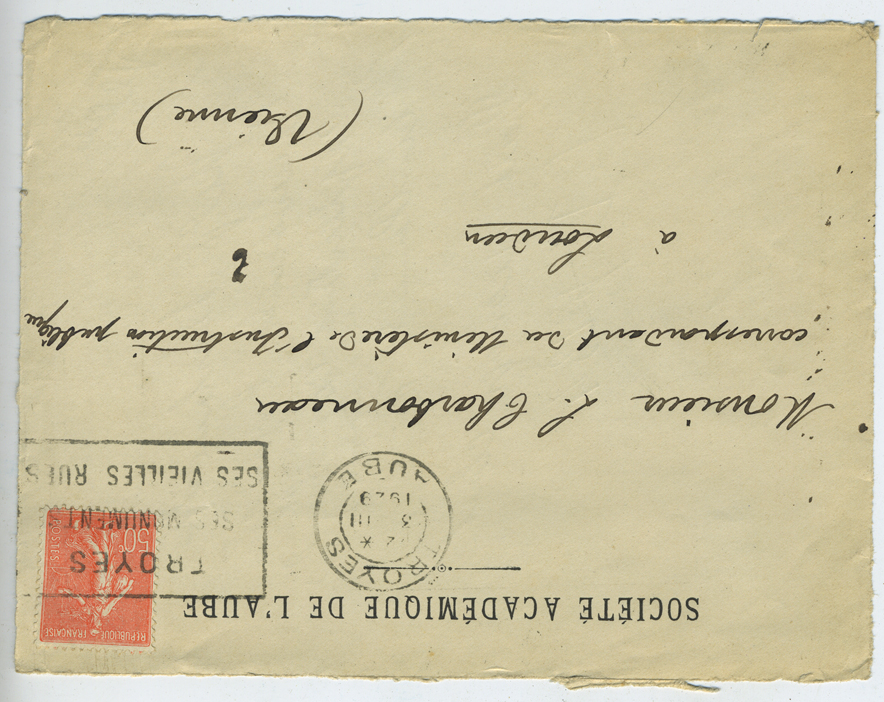 SOCIÉTÉ ACADÉMIQUE DE L'AUBE
RÉPUBLIQUE FRANÇAISE
50c
POSTES
TROYES
SES MONUMENTS
SES VIEILLES RUES
TROYES
*
3 III
1929
AUBE
Monsieur L. Charbonneau
correspondant du Ministère de l'Instruction publique
à Loudun
(Vienne)